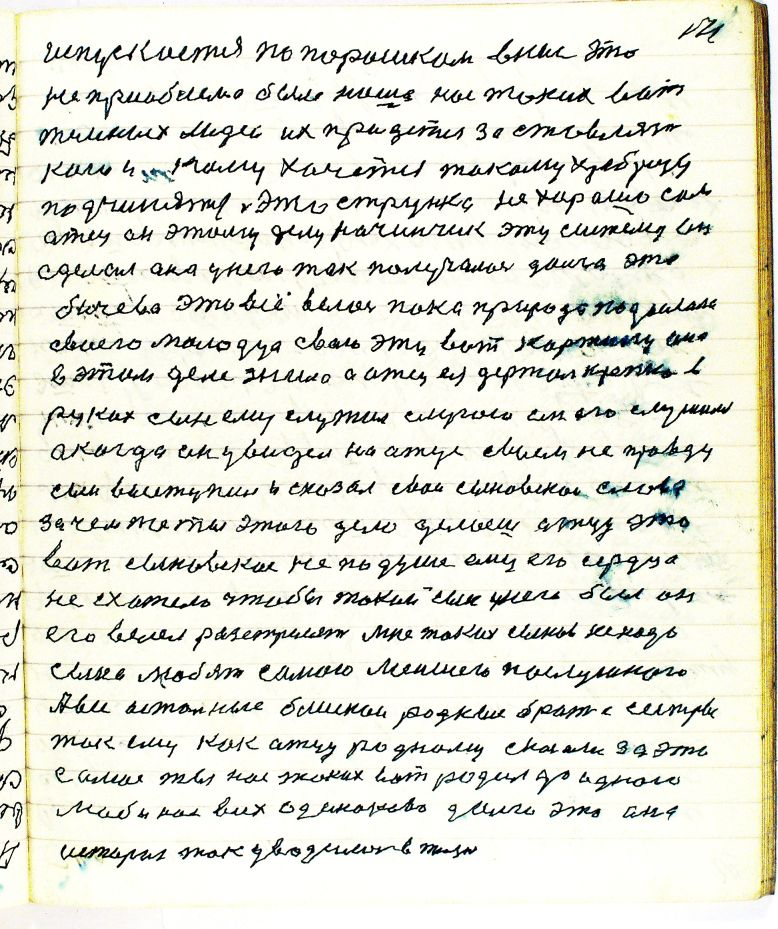 испускается по порошкам в нас это
не приобрело было наше нас таких вот
темных людей их придется заставлят
кого и кому хочется такому
подчинятся, это стрункa не хорошо сам
атец он этому делу начинчик эту систему он
сделал ана у него так получалоя долга это
бичева это всё велоя пока природа подавала
своего молодца свою эту вот картину ана
в этом деле знила а атец ея держал крепко в
руках сын ему служил слугою он его слушал
акогда он увидел на атце своем не правду
сын выступил и сказал свои сыновское слова
зачем же ты этого дело делаеш атцу это
вот сыновское не подуше ему его сердца
не схотело чтобы такой сын у него был он
его велел разстрелят мне таких сынов ненадо
сына любят самого меншего послушного
А все астолные близкои родные братя сестры
так ему как атцу родному сказали за это
самое ты нас таких вот родил до адного
люби нас всех одинаково долго это ана
история так уводилоя в